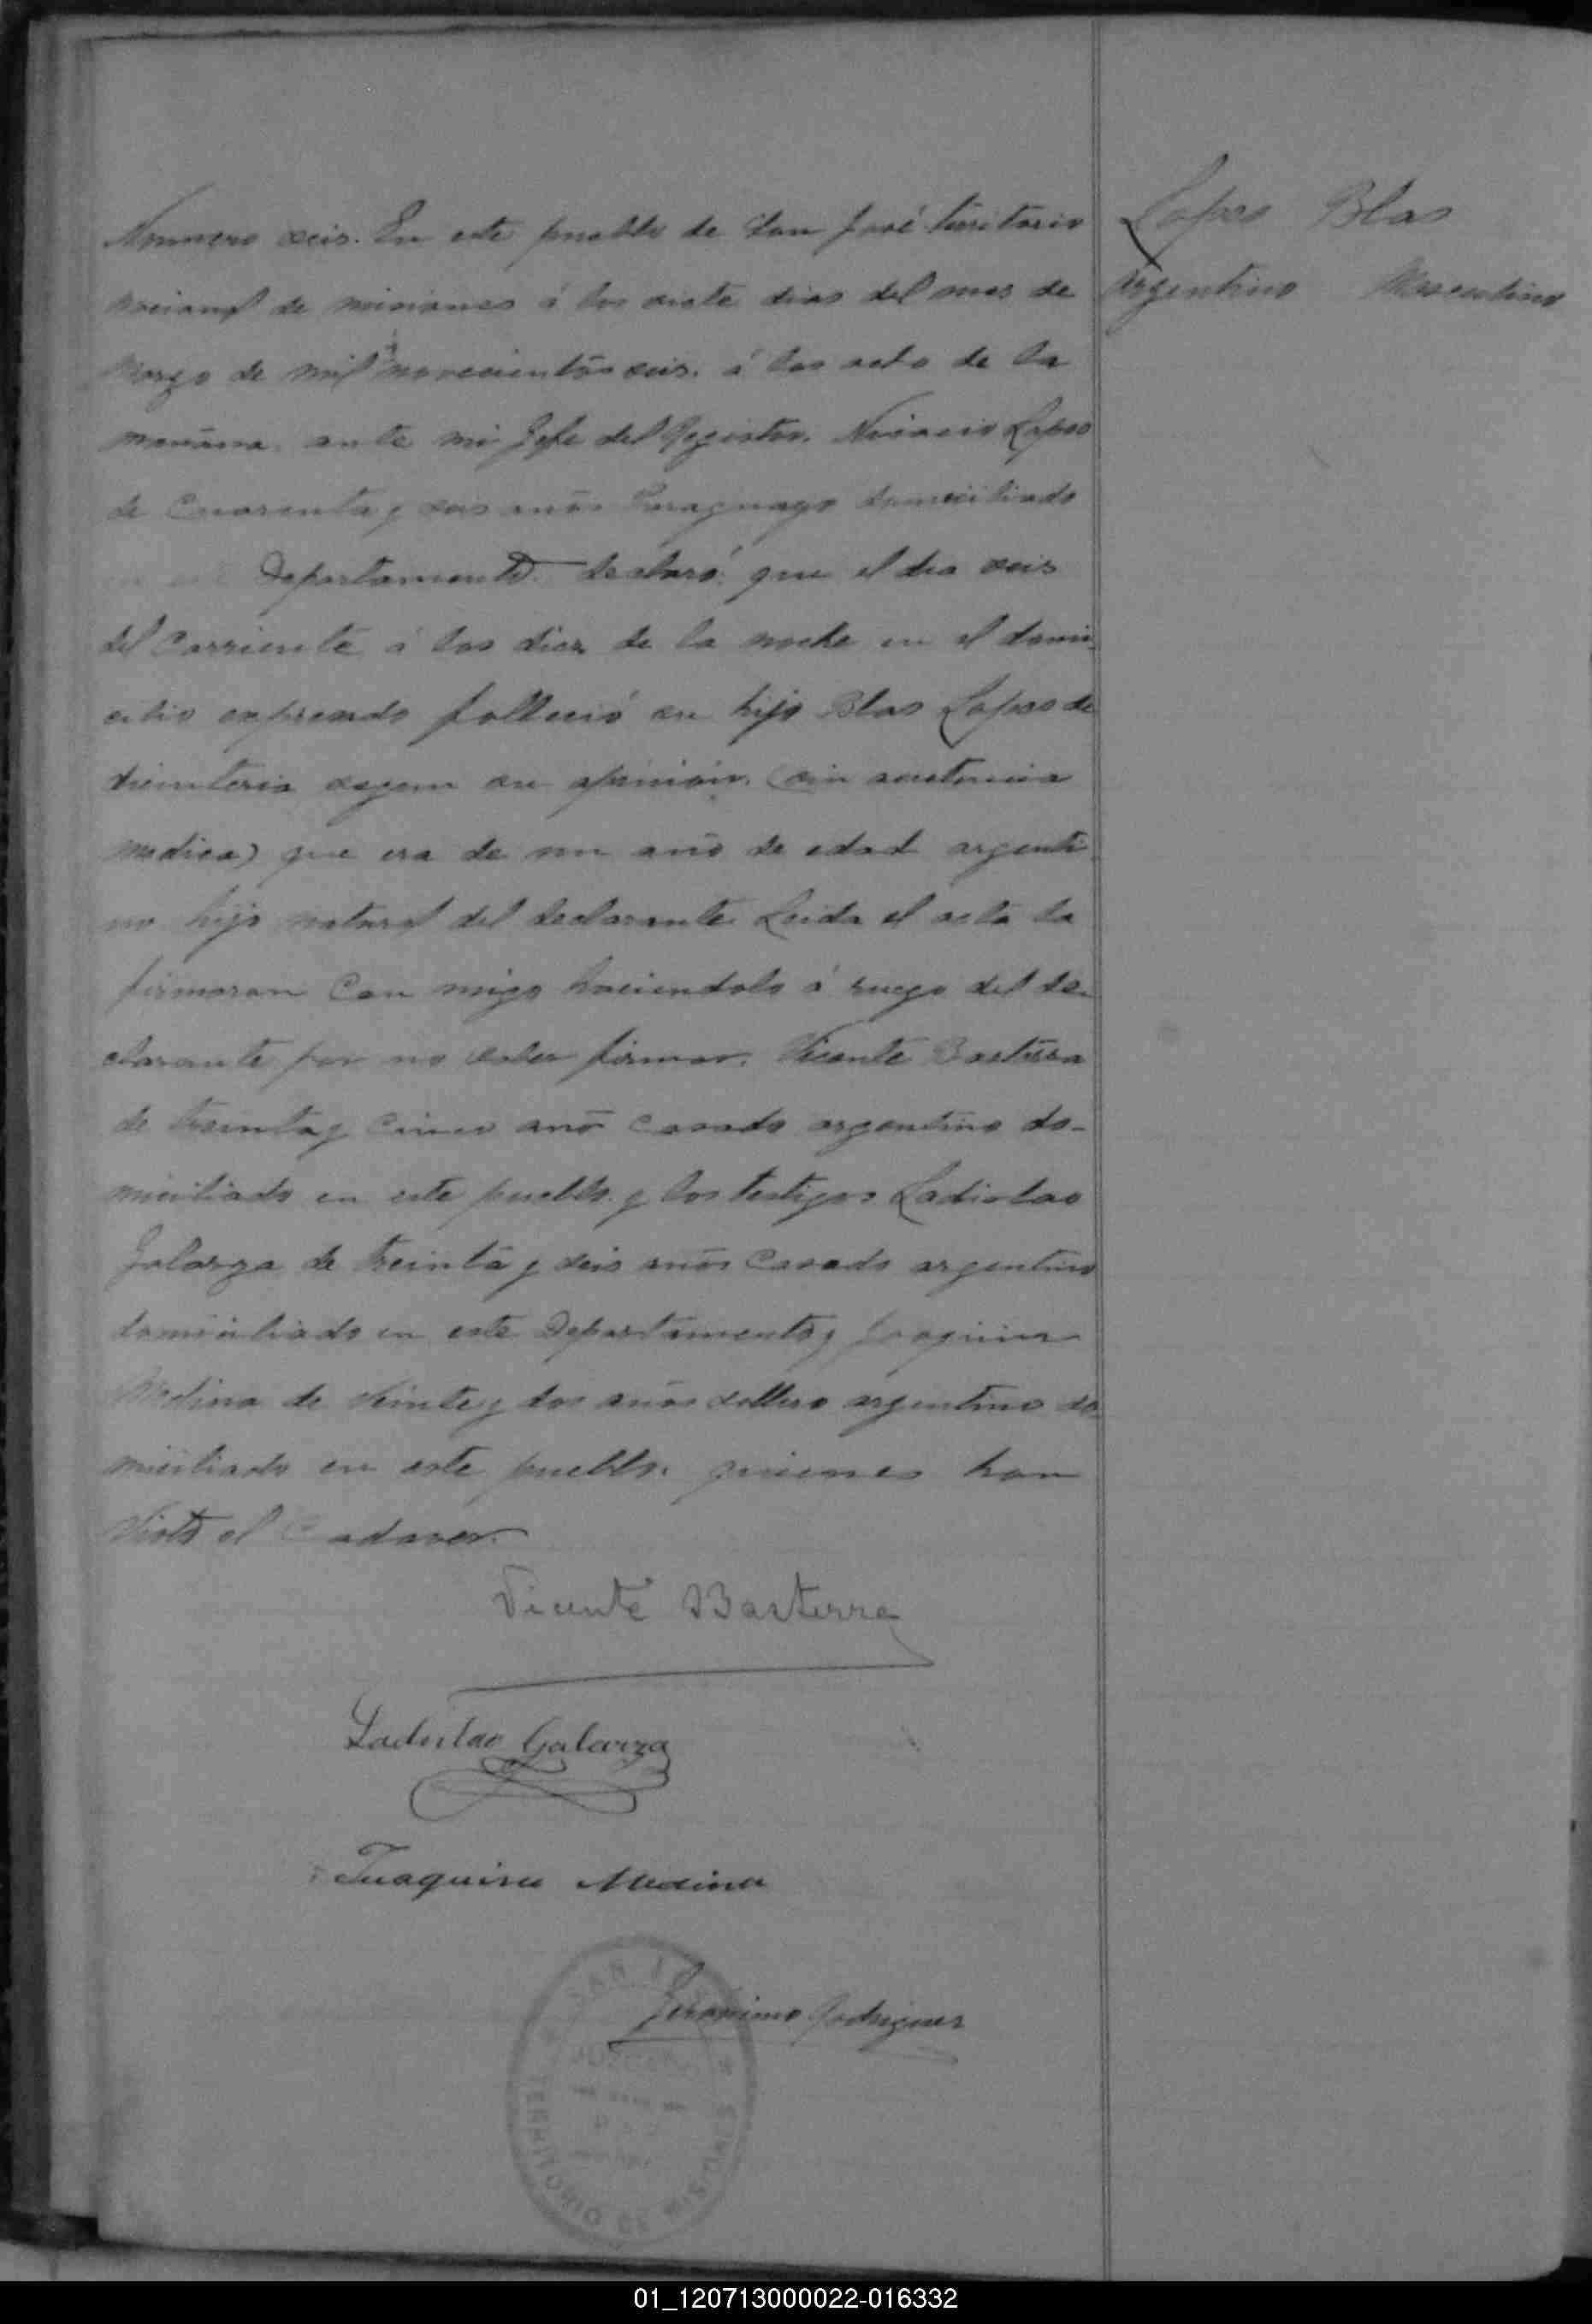 Lopes Blas
Argentino Masculino
Numero seis. En este pueblo de San José territorio
nacional de misiones á los siete dias del mes de
Marzo de mil novecientos seis. á las ocho de la
mañana. ante mi Jefe del Registro. Lopes
de Cuarenta y años Paraguayo domiciliado
en este Departamento. declaró: que el dia seis
del Corriente á las diez de la noche en el domi-
cilio expresado falleció su hijo Blas Lopes de
disinteria segun su opinión. (sin asistencia
medica) que era de un año de edad argenti-
no hijo natural del declarante Leida el acta la
firmaron Con migo haciendolo á ruego del de-
clarante por no saber firmar. Vicente Basterra
de treinta y cinco año casado argentino do-
miciliado en este pueblo. y los testigos Ladislao
Galarza de treinta y seis años Casado argentino
domiciliado en este Departamento y Joaquin
Medina de veinte y dos años soltero argentino do
miciliado en este pueblo. quienes han
visto el Cadaver.
Vicente Basterra
Ladislao Galarza
Juaquin Medina
Jeronimo Rodriguez
SAN JOSE
JUZGADO
TERRITORIO DE MISIONES
01_120713000022-016332